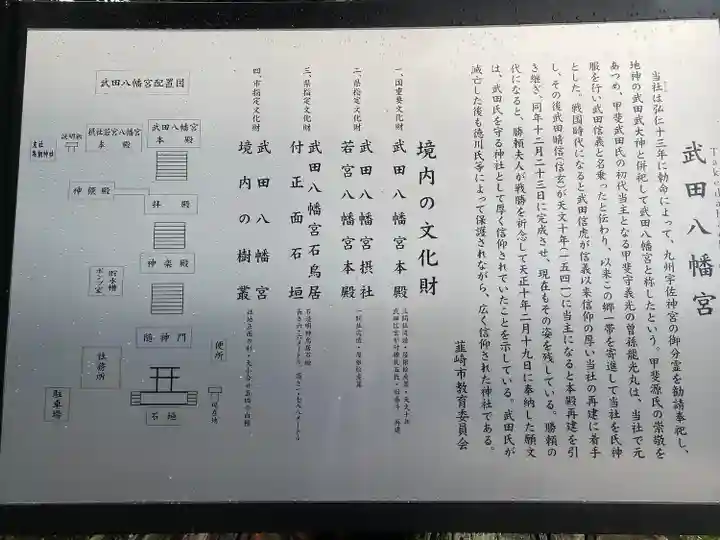 武田八幡宮
当社は弘仁十三年に勅命によって、九州宇佐神宮の御分霊を勧請奉祀し、
地神の武田武大神と併祀して武田八幡宮と称したという。甲斐源氏の崇敬を
あつめ、甲斐武田氏の初代当主となる甲斐守義光の曽孫龍光丸は、当社で元
服を行い武田信義と名乗ったと伝わり、以来この郷一帯を寄進して当社を氏神
とした。戦国時代になると武田信虎が信義以来信仰の厚い当社の再建に着手
し、その後武田晴信(信玄)が天文十年(一五四一)に当主になると本殿再建を引
き継ぎ、同年十二月二十三日に完成させ、現在もその姿を残している。勝頼の
代になると、勝頼夫人が戦勝を祈念して天正十年二月十九日に奉納した願文
は、武田氏を守る神社として厚く信仰されていたことを示している。武田氏が
滅亡した後も徳川氏等によって保護されながら、広く信仰された神社である。
韮崎市教育委員会
境内の文化財
一、国重要文化財
武田八幡宮本殿
二、県指定文化財
武田八幡宮摂社
若宮八幡宮本殿
一間社流造・屋根桧皮葺
三、県指定文化財
武田八幡宮石鳥居
付正面石垣
四、市指定文化財
武田八幡宮
境内の樹叢
武田八幡宮配置図
武田八幡宮
本殿
摂社若宮八幡宮
本殿
説明板
末社
神饌殿
拝殿
神楽殿
貯水槽
ポンプ室
随神門
社務所
便所
駐車場
石垣
現在地